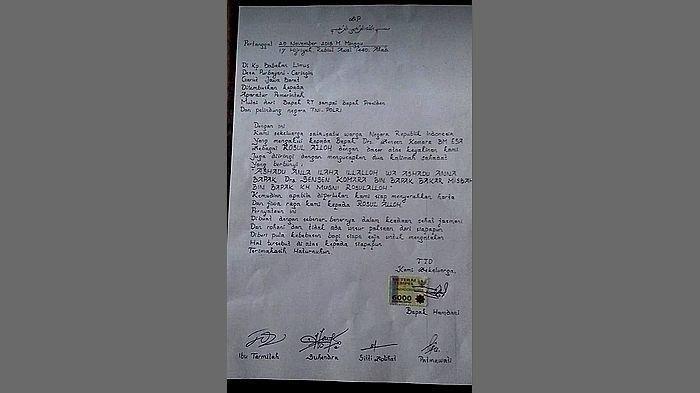 Pertanggal 25 November 2018 M Minggu
17 Hijriyah Rabiul Awal 1440. Allah
Di Kp. Babakan Limus
Desa Purbayani - Caringin
Garut Jawa Barat
Ditembuskan kepada
Aparatur Pemerintah
Mulai dari Bapak RT sampai Bapak Presiden
Dan pelindung negara TNI-POLRI
Dengan ini
Kami sekeluarga salah satu warga Negara Republik Indonesia
Yang mengakui kepada Bapak Drs. Sensen Komara BM ESA
Sebagai ROSUL ALLOH dengan dasar atas keyakinan kami
Juga diiringi dengan mengucapkan dua kalimah sahadat
Yang berbunyi :
"ASHADU ANLA ILAHA ILLALLOH WA ASHADU ANNA
BAPAK Drs SENSEN KOMARA BIN BAPAK BAKAR MISBAH
BIN BAPAK KH MUSNI ROSULALLOH"
Kemudian apabila diperlukan kami siap menyerahkan harta
Dan jiwa raga kami kepada ROSUL ALLOH
Pernyataan ini
Dibuat dengan sebenar-benarnya dalam keadaan sehat jasmani
Dan rohani dan tidak ada unsur paksaan dari siapapun
Diberi pula kebebasan bagi siapa saja untuk mengatakan
Hal tersebut di atas kepada siapapun
Terimakasih Haturnuhun.
TTD
Kami Sekeluarga.
METERAI
TEMPEL
6000
Bapak Hamdani
Ibu Tarmilah Suhendra Sitti Robiat Patmawati